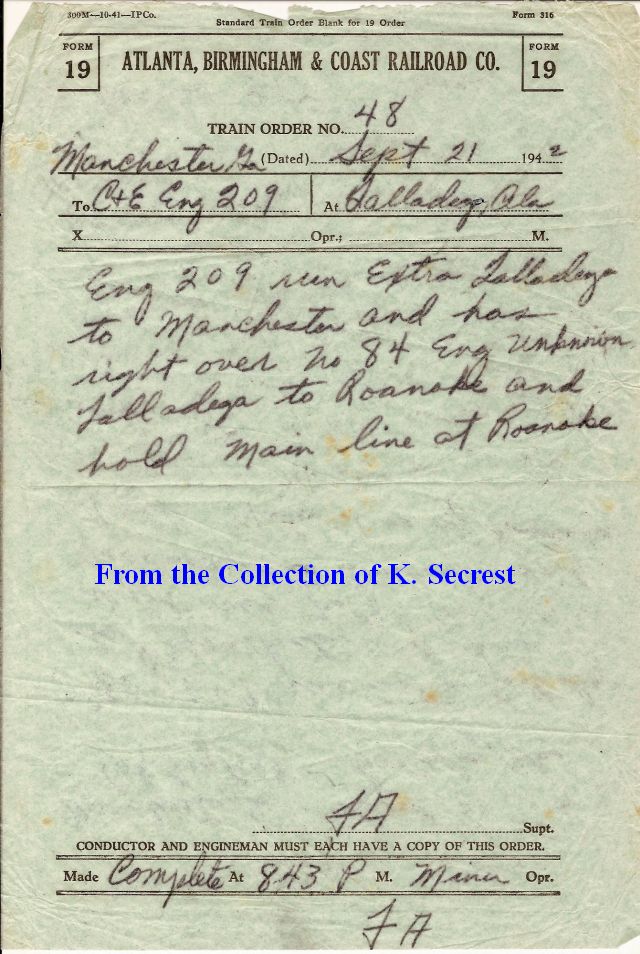 300M—10-41—IPCo.
Standard Train Order Blank for 19 Order
Form 316
FORM 19
ATLANTA, BIRMINGHAM & COAST RAILROAD CO.
FORM 19
TRAIN ORDER NO. 48
Manchester, Ga (Dated) Sept 21 1942
To C+E Eng 209 At Talladega, Ala
X Opr.; M.
Eng 209 run Extra Talladega
to Manchester and has
right over No 84 Eng Unknown
Talladega to Roanoke and
hold Main line at Roanoke
From the Collection of K. Secrest
JA
Supt.
CONDUCTOR AND ENGINEMAN MUST EACH HAVE A COPY OF THIS ORDER.
Made Complete At 843 P M. Miner Opr.
JA